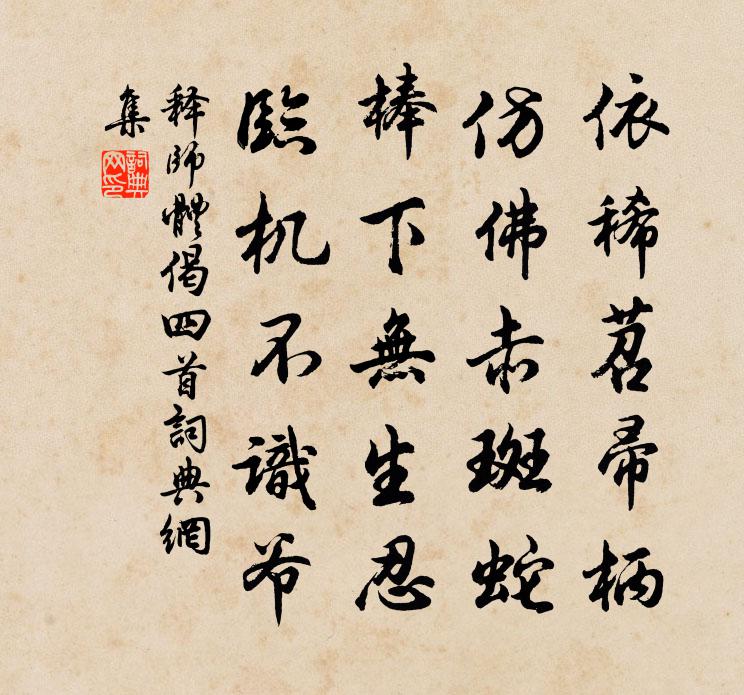 依稀苕帚柄
仿佛赤斑蛇
棒下無生忍
臨机不識爷
释師體偈四首詞典網
集
詞典網印